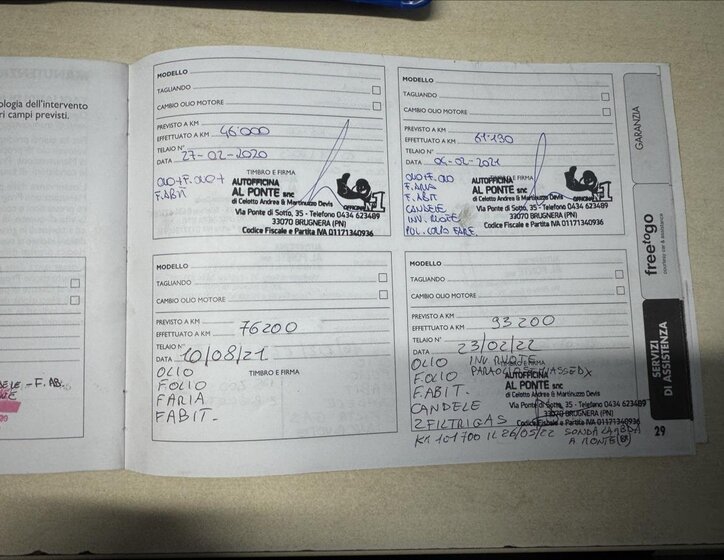 ologia dell'intervento
ri campi previsti.
ELE - F. AB.
MODELLO
TAGLIANDO
CAMBIO OLIO MOTORE
PREVISTO A KM
EFFETTUATO A KM 46.000
TELAIO N°
DATA 27-02-2020
TIMBRO E FIRMA
OLIO+F.OLIO+
F.ABIT
AUTOFFICINA
AL PONTE snc
di Celotto Andrea & Martinuzzo Devis
Via Ponte di Sotto, 35 - Telefono 0434 623489
33070 BRUGNERA (PN)
Codice Fiscale e Partita IVA 01171340936
OFFICINA #1
MODELLO
TAGLIANDO
CAMBIO OLIO MOTORE
PREVISTO A KM
EFFETTUATO A KM 61.130
TELAIO N°
DATA 04-02-2021
TIMBRO E FIRMA
OLIO+F.OLIO
F. ARIA
F. ABIT
CANDELE
INV. RUOTE
AUTOFFICINA
AL PONTE snc
di Celotto Andrea & Martinuzzo Devis
Via Ponte di Sotto, 35 - Telefono 0434 623489
33070 BRUGNERA (PN)
Codice Fiscale e Partita IVA 01171340936
OFFICINA #1
MODELLO
TAGLIANDO
CAMBIO OLIO MOTORE
PREVISTO A KM
EFFETTUATO A KM 76200
TELAIO N°
DATA 10/08/21
TIMBRO E FIRMA
OLIO
FOLIO
FARIA
FABIT.
MODELLO
TAGLIANDO
CAMBIO OLIO MOTORE
PREVISTO A KM
EFFETTUATO A KM 93200
TELAIO N°
DATA 23/02/22
TIMBRO E FIRMA
OLIO INV RUOTE
F.OLIO
F.ABIT.
CANDELE
2 FILTRI GAS
AUTOFFICINA
AL PONTE snc
di Celotto Andrea & Martinuzzo Devis
Via Ponte di Sotto, 35 - Telefono 0434 623489
33070 BRUGNERA (PN)
Codice Fiscale e Partita IVA 01171340936
KM 101700 IL 26/05/22 SONDA LAMBDA
A MONTE
29
GARANZIA
freetogo
courtesy car & assistance
SERVIZI
DI ASSISTENZA